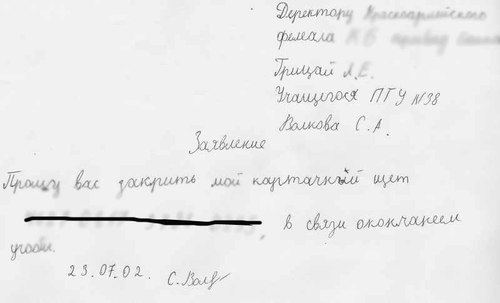 Директору Красноармейского
фелеала
Грицай Л.Е.
Учащегося ПТУ №38
Волкова С.А.
Заявление
Прошу вас закрить мой картачный щет
в связи окончанеем
учоби.
23.07.02. С. Волк